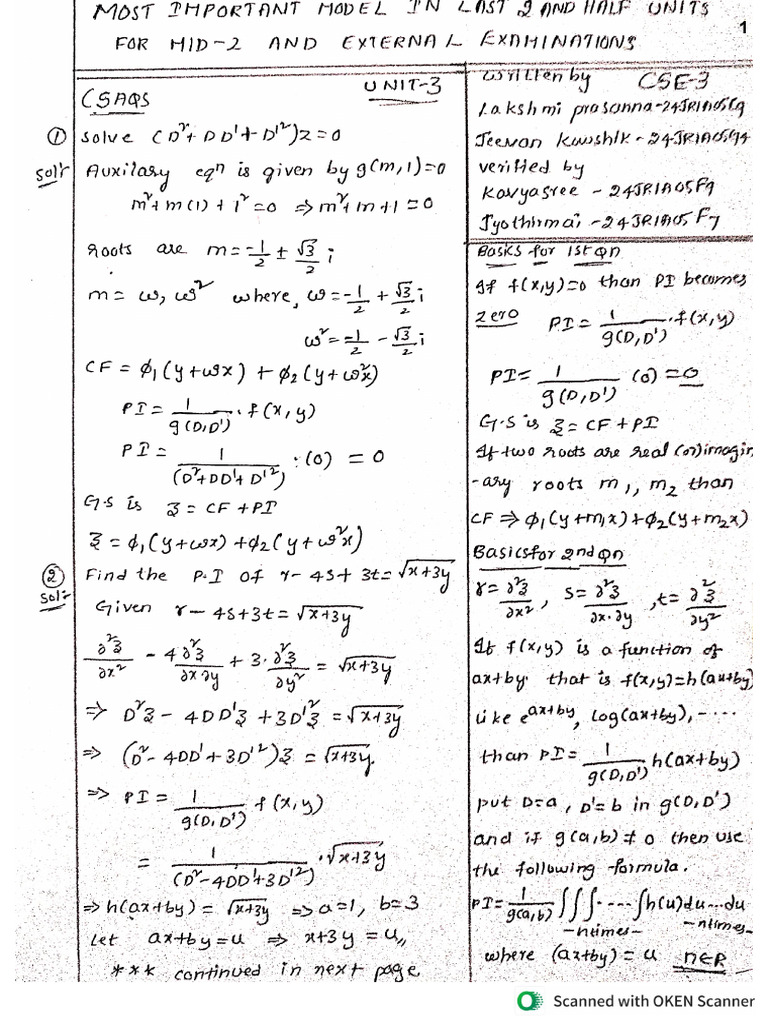 MOST IMPORTANT MODEL IN LAST 2 AND HALF UNITS
FOR MID-2 AND EXTERNAL EXAMINATIONS
1
CSAQS UNIT-3
① Solve (D²+DD'+D'²)z=0
Sol: Auxilary eqⁿ is given by g(m,1)=0
m²+m(1)+1²=0 ⇒ m²+m+1=0
roots are m = -1/2 ± √3/2 i
m = ω, ω² where, ω = -1/2 + √3/2 i
ω² = -1/2 - √3/2 i
CF = ϕ₁(y+ωx) + ϕ₂(y+ω²x)
PI = 1/g(D,D') . f(x,y)
PI = 1/(D²+DD'+D'²) . (0) = 0
G.S is z = CF+PI
z = ϕ₁(y+ωx) + ϕ₂(y+ω²x)
② Find the P.I OF r-4s+3t = √x+3y
Sol: Given r-4s+3t = √x+3y
∂²z/∂x² - 4 ∂²z/∂x∂y + 3. ∂²z/∂y² = √x+3y
⇒ D²z - 4DD'z + 3D'²z = √x+3y
⇒ (D²-4DD'+3D'²)z = √x+3y
⇒ PI = 1/g(D,D') f(x,y)
= 1/(D²-4DD'+3D'²) . √x+3y
⇒ h(ax+by) = √x+3y ⇒ a=1, b=3
Let ax+by=u ⇒ x+3y=u,,
*** continued in next page.
written by CSE-3
Lakshmi prasanna-24JR1A05C9
Jeevan Kowshik-24JR1A05G4
verified by
Kavyasree - 24JR1A05F9
Jyothirmai - 24JR1A05F7
Basks for 1st qn
If f(x,y)=0 than PI becomes
zero PI = 1/g(D,D') . f(x,y)
PI = 1/g(D,D') (0) = 0
G.S is z = CF+PI
If two roots are real (or) imagin
-ary roots m₁, m₂ than
CF ⇒ ϕ₁(y+m₁x) + ϕ₂(y+m₂x)
Basics for 2nd qn
r = ∂²z/∂x², s = ∂²z/∂x.∂y, t = ∂²z/∂y²
If f(x,y) is a function of
ax+by. that is f(x,y)=h(ax+by)
like e^ax+by, Log(ax+by),-----
than PI = 1/g(D,D') h(ax+by)
put D=a, D'=b in g(D,D')
and if g(a,b)≠0 then use
the following formula.
PI = 1/g(a,b) ∫∫∫----∫h(u)du...du
-ntimes- -ntimes-
where (ax+by)=u n∈R
Scanned with OKEN Scanner